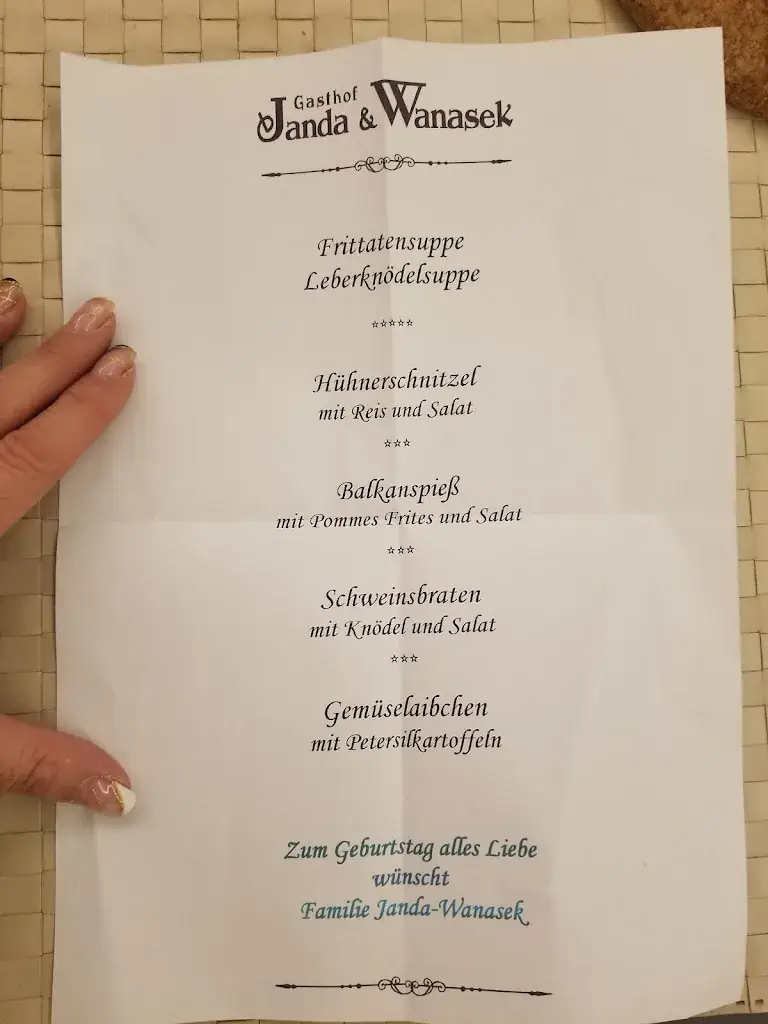 Gasthof
Janda & Wanasek
Frittatensuppe
Leberknödelsuppe
☆☆☆☆☆
Hühnerschnitzel
mit Reis und Salat
☆☆☆
Balkanspieß
mit Pommes Frites und Salat
☆☆☆
Schweinsbraten
mit Knödel und Salat
☆☆☆
Gemüselaibchen
mit Petersilkartoffeln
Zum Geburtstag alles Liebe
wünscht
Familie Janda-Wanasek